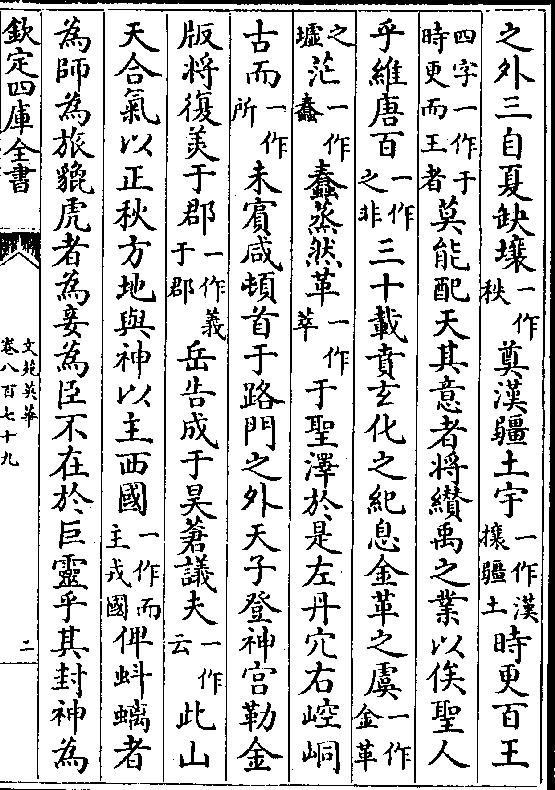 之外三自夏缺壤一作秩奠漢疆土宇一作漢攘疆土時更百王
四字一作于時更而王者莫能配天其意者將纘禹之業以俟聖人
乎維唐百一作之非三十載賁玄化之紀息金革之虞一作金革
之墟茫一作蠢蠢蒸然革一作萃于聖澤於是左丹穴右崆峒
古而一作所未賓咸頓首于路門之外天子登神宫勒金
版将復羙于郡一作義于郡岳告成于昊蒼議夫一作云此山
天合氣以正秋方地與神以主西國一作而主戎國俾蚪螭者
為師為旅貔虎者為妾為臣不在於巨靈乎其封神為
欽定四庫全書
文苑英華
卷八百七十九
二